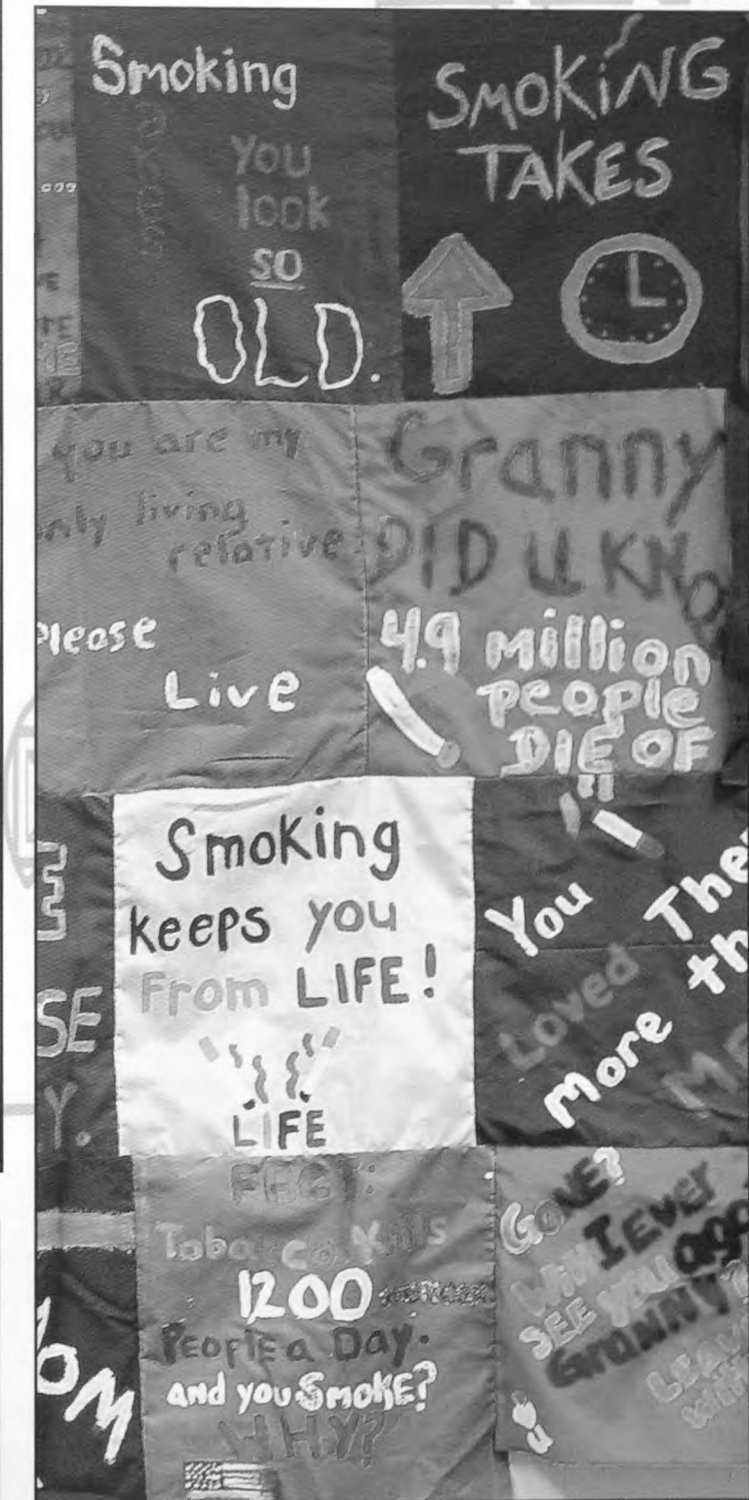 Smoking
makes
you
look
so
OLD.
SMOKiNG
TAKES
you are my
only living
relative
Please
Live
Granny
DID U KNO
4.9 Million
people
DIE OF
E
SE
Y.
Smoking
keeps you
From LIFE!
LIFE
You
Loved
The
More
th
ME
OM
FACT:
Tobacco Kills
1200
PEOPlE a Day.
and you SMOKE?
WHY?
GONE?
Will I EVER
SEE you aga
GraNNY
LEAV
u